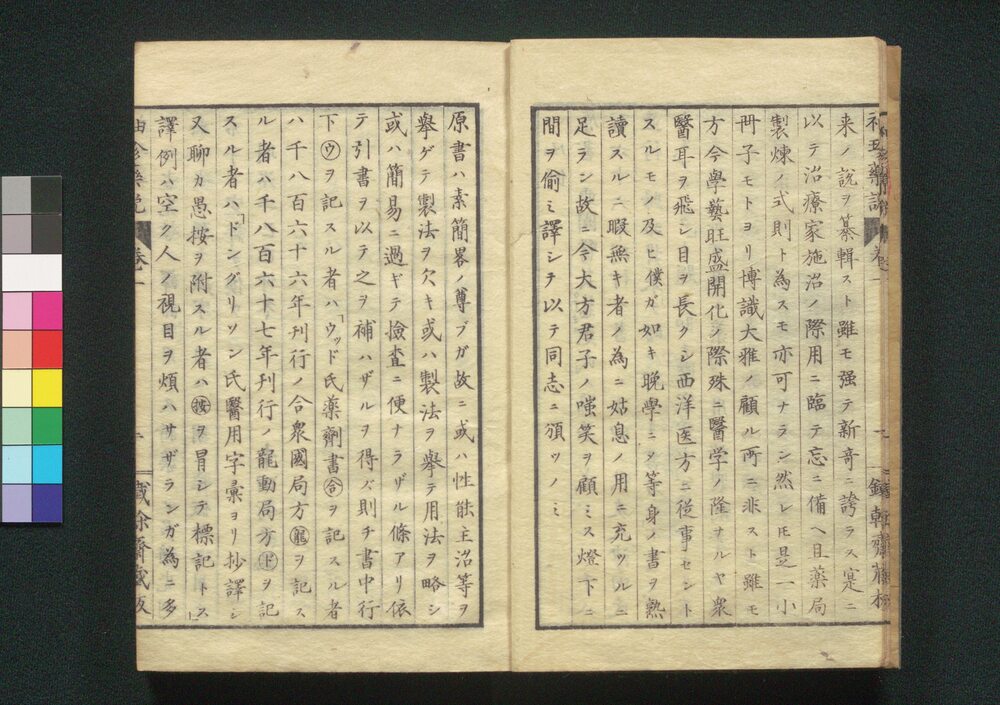 来ノ説ヲ纂輯スト雖モ强テ新奇ニ誇ラス寔ニ
以テ治療家施治ノ際用ニ臨テ忘ニ備ヘ且薬局
製煉ノ式則ト為スモ亦可ナラン然レ𪜈是一小
冊子モトヨリ博識大雅ノ顧ル所ニ非スト雖モ
方今學藝旺盛開化ノ際殊ニ醫学ノ隆ナルヤ衆
醫耳ヲ飛シ目ヲ長クシ西洋医方ニ従事セント
スルモノ及ヒ僕ガ如キ晩學ニ〆等身ノ書ヲ熟
讀スルニ暇無キ者ノ為ニ姑息ノ用ニ充ツルニ
足ラン故ニ今大方君子ノ嗤笑ヲ顧ミス燈下ニ
間ヲ偷ミ譯シテ以テ同志ニ頒ツノミ
原書ハ素簡畧ノ尊ブガ故ニ或ハ性能主治等ヲ
擧ゲテ製法ヲ欠キ或ハ製法ヲ擧テ用法ヲ略シ
或ハ簡易ニ過ギテ撿査ニ便ナラザル條アリ依
テ引書ヲ以テ之ヲ補ハザルヲ得ズ則チ書中行
下㋒ヲ記スル者ハ「ウッド氏薬劑書㊁ヲ記スル者
ハ千八百六十六年刊行ノ合衆國局方㊁ヲ記ス
ル者ハ千八百六十七年刊行ノ龍動局方㋣ヲ記
スル者ハ「ドングリソン氏醫用字彙ヨリ抄譯シ
又聊カ愚按ヲ附スル者ハ按ヲ冒シテ標記トス」
譯例ハ空ク人ノ視目ヲ煩ハサザランガ為ニ多